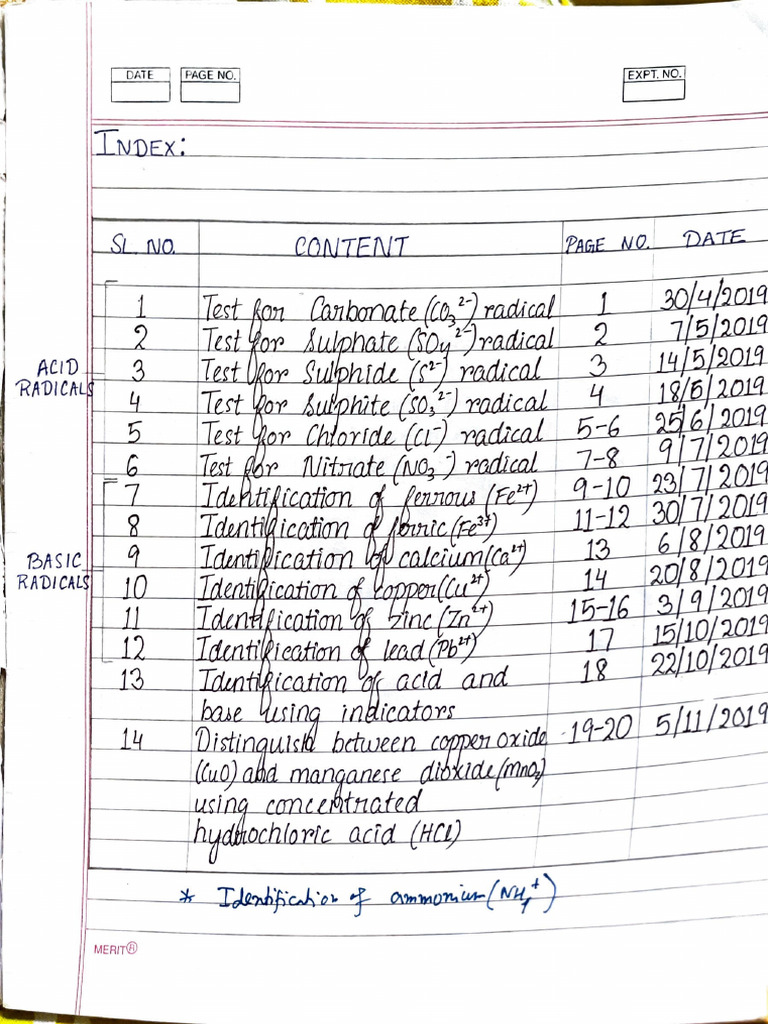 DATE PAGE NO. EXPT. NO.
INDEX:
SL. NO. CONTENT PAGE NO. DATE
ACID RADICALS
1 Test for Carbonate (CO₃²⁻) radical 1 30/4/2019
2 Test for Sulphate (SO₄²⁻) radical 2 7/5/2019
3 Test for Sulphide (S²⁻) radical 3 14/5/2019
4 Test for Sulphite (SO₃²⁻) radical 4 18/5/2019
5 Test for Chloride (Cl⁻) radical 5-6 25/6/2019
6 Test for Nitrate (NO₃⁻) radical 7-8 9/7/2019
BASIC RADICALS
7 Identification of ferrous (Fe²⁺) 9-10 23/7/2019
8 Identification of ferric (Fe³⁺) 11-12 30/7/2019
9 Identification of calcium (Ca²⁺) 13 6/8/2019
10 Identification of copper (Cu²⁺) 14 20/8/2019
11 Identification of zinc (Zn²⁺) 15-16 3/9/2019
12 Identification of lead (Pb²⁺) 17 15/10/2019
13 Identification of acid and 18 22/10/2019
base using indicators
14 Distinguish between copper oxide 19-20 5/11/2019
(CuO) and manganese dioxide (MnO₂)
using concentrated
hydrochloric acid (HCl)
* Identification of ammonium (NH₄⁺)
MERIT®